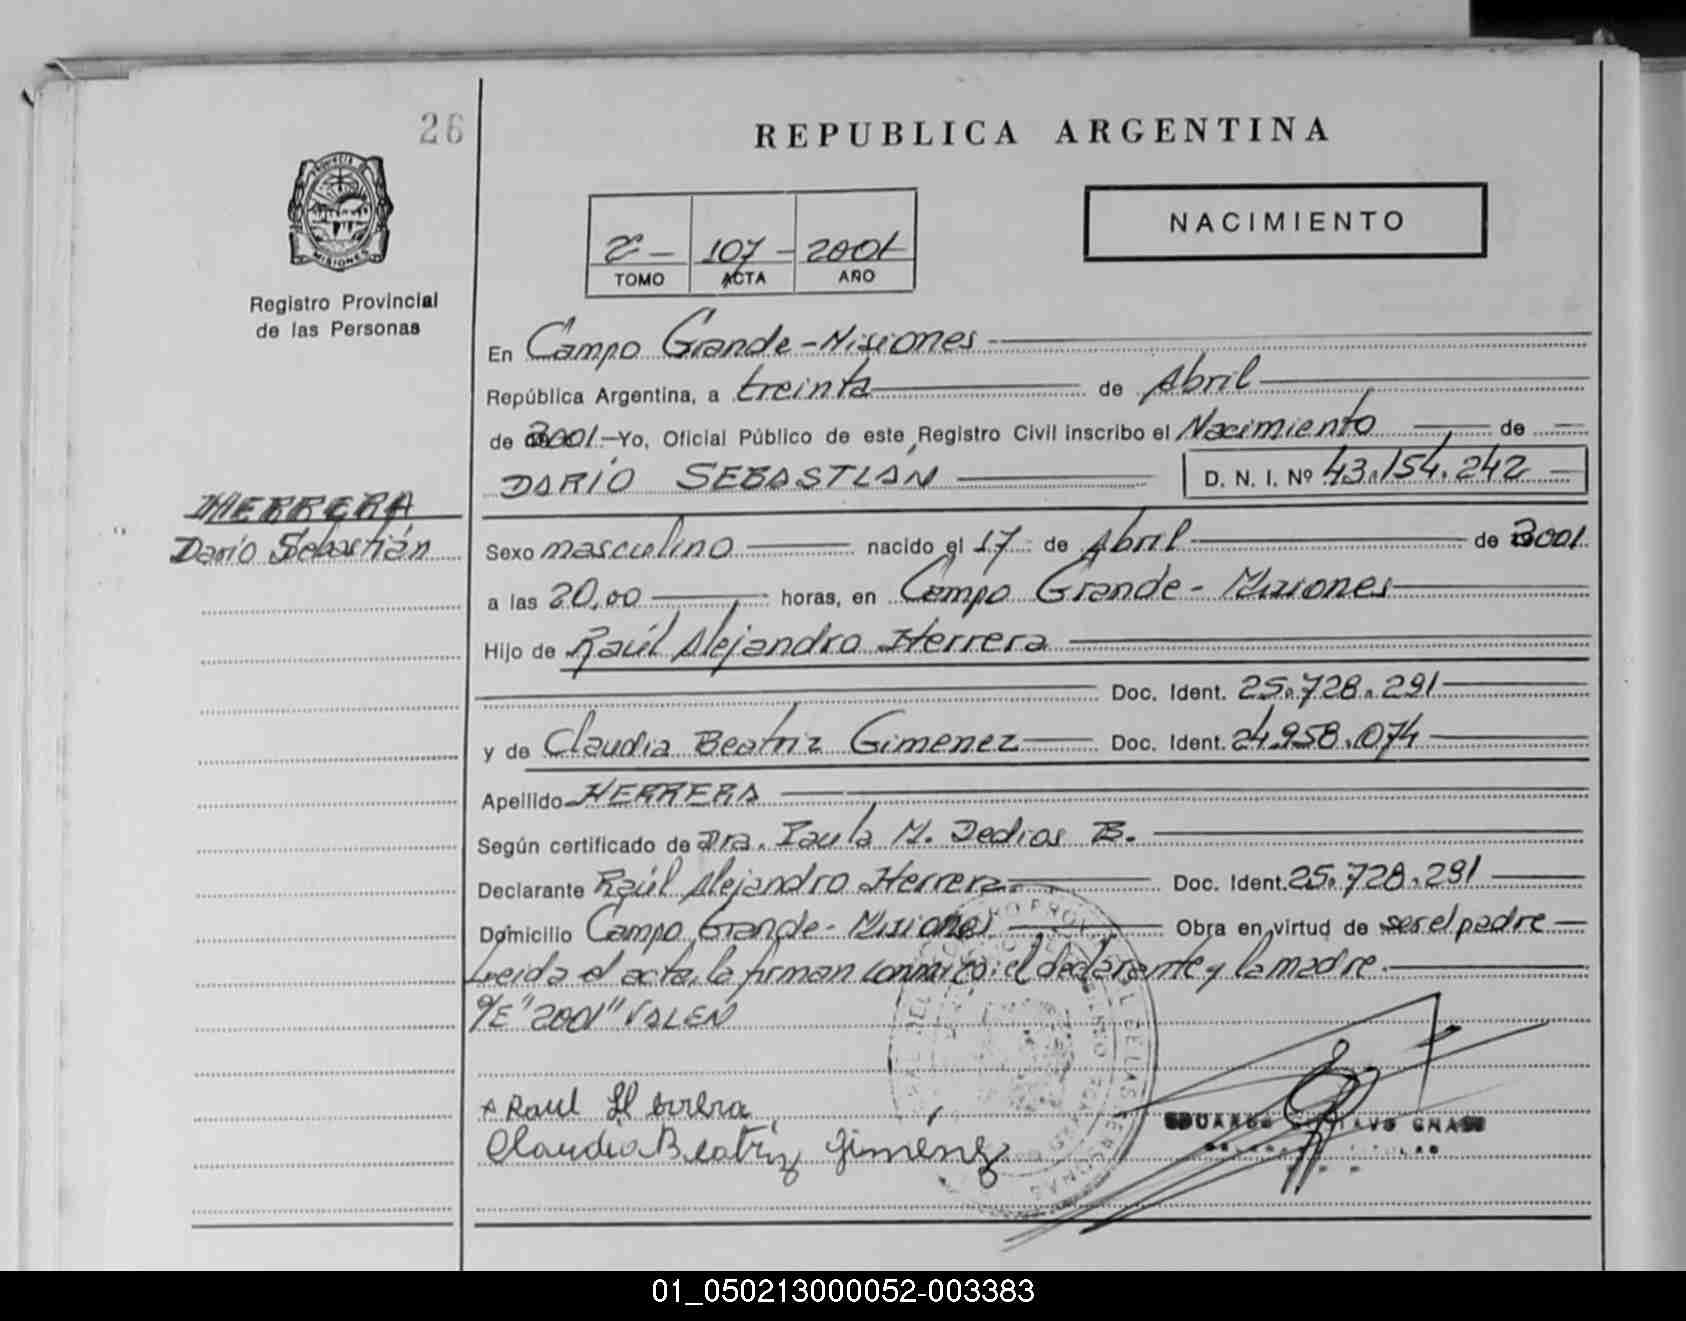 26
REPUBLICA ARGENTINA
PROVINCIA DE
MISIONES
Registro Provincial
de las Personas
2º - 107 - 2001
TOMO ACTA AÑO
NACIMIENTO
En Campo Grande - Misiones
República Argentina, a treinta de Abril
de 2001 - Yo, Oficial Público de este Registro Civil inscribo el Nacimiento de
DARÍO SEBASTIÁN D. N. I. Nº 43.154.242
HERRERA
Darío Sebastián
Sexo masculino nacido el 17 de Abril de 2001
a las 20,00 horas, en Campo Grande - Misiones
Hijo de Raúl Alejandro Herrera
Doc. Ident. 25.728.291
y de Claudia Beatriz Gimenez Doc. Ident. 24.958.074
Apellido HERRERA
Según certificado de Dra. Paula M. Dedios B.
Declarante Raúl Alejandro Herrera Doc. Ident. 25.728.291
Domicilio Campo Grande - Misiones Obra en virtud de ser el padre
Leida el acta, la firman conmigo: el declarante y la madre.
S/E "2001" VALEN
Raul Herrera
Claudia Beatriz Gimenez
EDUARDO
01_050213000052-003383